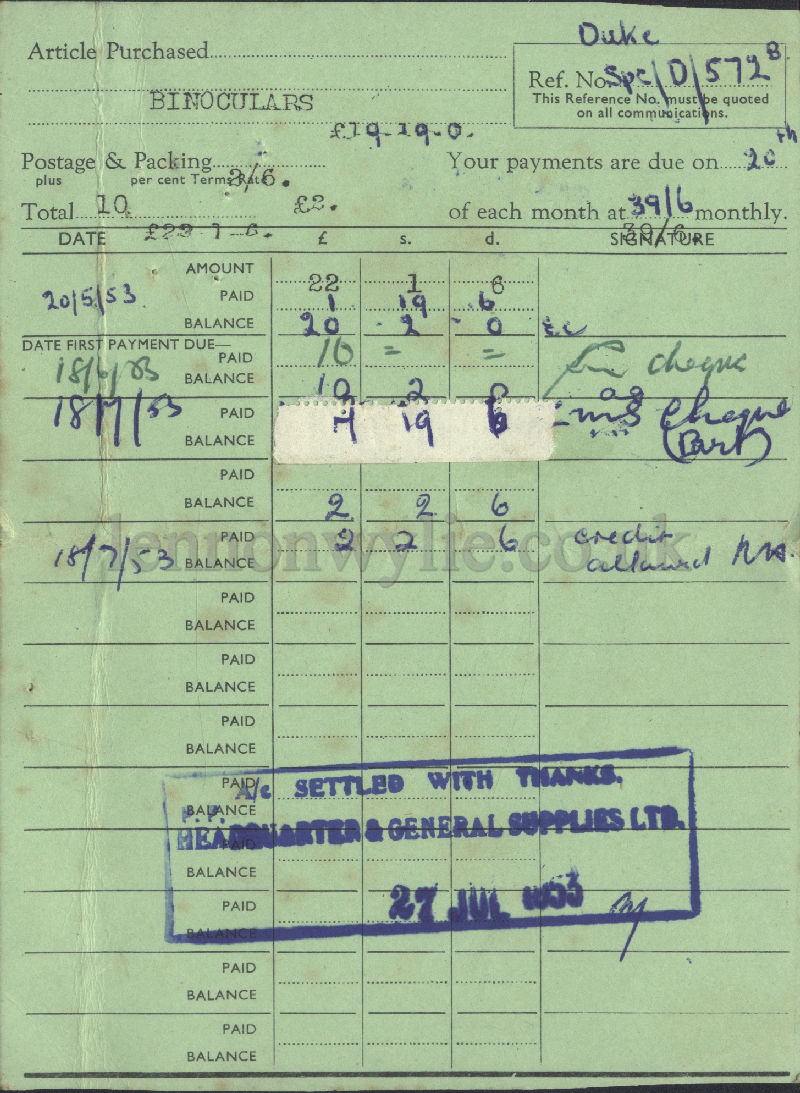 Duke
Article Purchased
Ref. No. Spc/D/572 B
This Reference No. must be quoted
on all communications.
BINOCULARS
£19.19.0.
Postage & Packing 2/6.
Your payments are due on 20th
plus per cent Terms Rate
Total 10 £2.
of each month at 39/6 monthly.
£22 1 6. 39/6.
DATE £ s. d. SIGNATURE
AMOUNT 22 1 6
20/5/53 PAID 1 19 6
BALANCE 20 - 2 - 0
DATE FIRST PAYMENT DUE—
18/6/53 PAID 10 = = cheque
BALANCE 10 2 0
18/7/53 PAID 7 19 6 cheque
BALANCE (Part)
PAID
BALANCE 2 2 6
18/7/53 PAID 2 2 6 credit
BALANCE allowed
lennonwylie.co.uk
PAID
BALANCE
PAID
BALANCE
PAID
BALANCE
PAID
A/c SETTLED WITH THANKS.
BALANCE
P.P.
HEADQUARTER & GENERAL SUPPLIES LTD.
PAID
BALANCE
PAID
27 JUL 1953
BALANCE
PAID
BALANCE
PAID
BALANCE